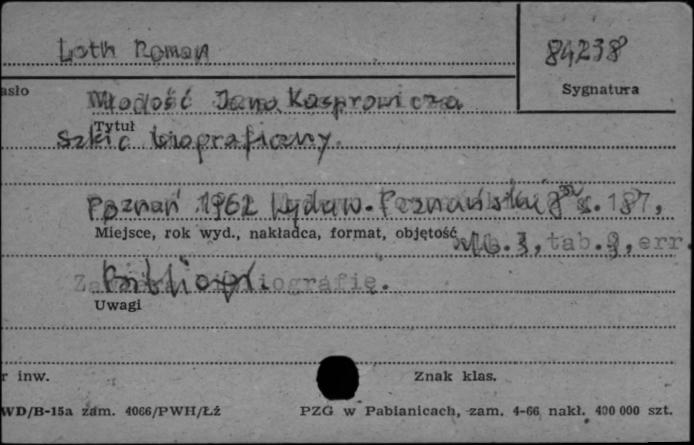 Loth Roman
84238
Sygnatura
asło
Młodość Jana Kasprowicza
Tytuł
szkic biograficzny.
Poznań 1962 Wydaw. Poznańskie 8° s. 187,
Miejsce, rok wyd., nakładca, format, objętość
nlb. 3, tab. 9, err.
Bibliogr.
Uwagi
r inw.
Znak klas.
WD/B-15a zam. 4066/PWH/Łż
PZG w Pabianicach, zam. 4-66 nakł. 400 000 szt.